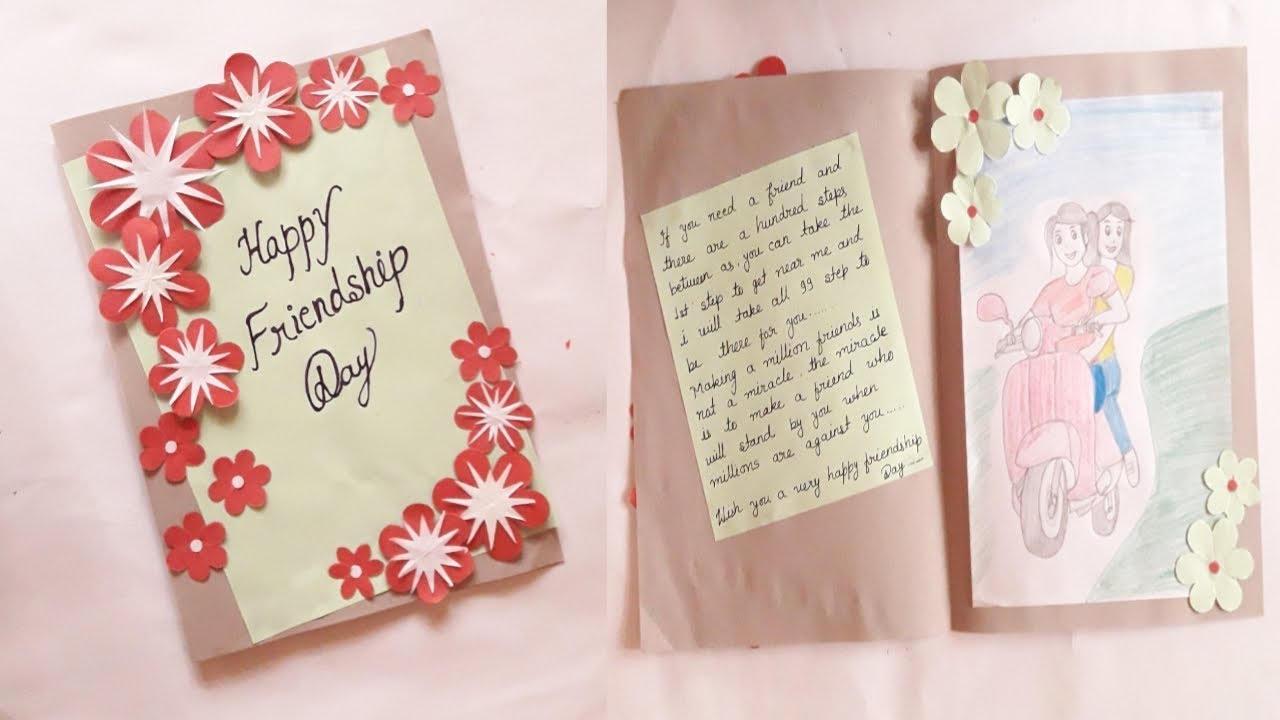 Happy
Friendship
Day
If you need a friend and
there are a hundred steps
between as, you can take the
1st step to get near me and
i will take all 99 step to
be there for you......
Making a million friends is
not a miracle. the miracle
is to make a friend who
will stand by you when
millions are against you.....
Wish you a very happy friendship
Day......